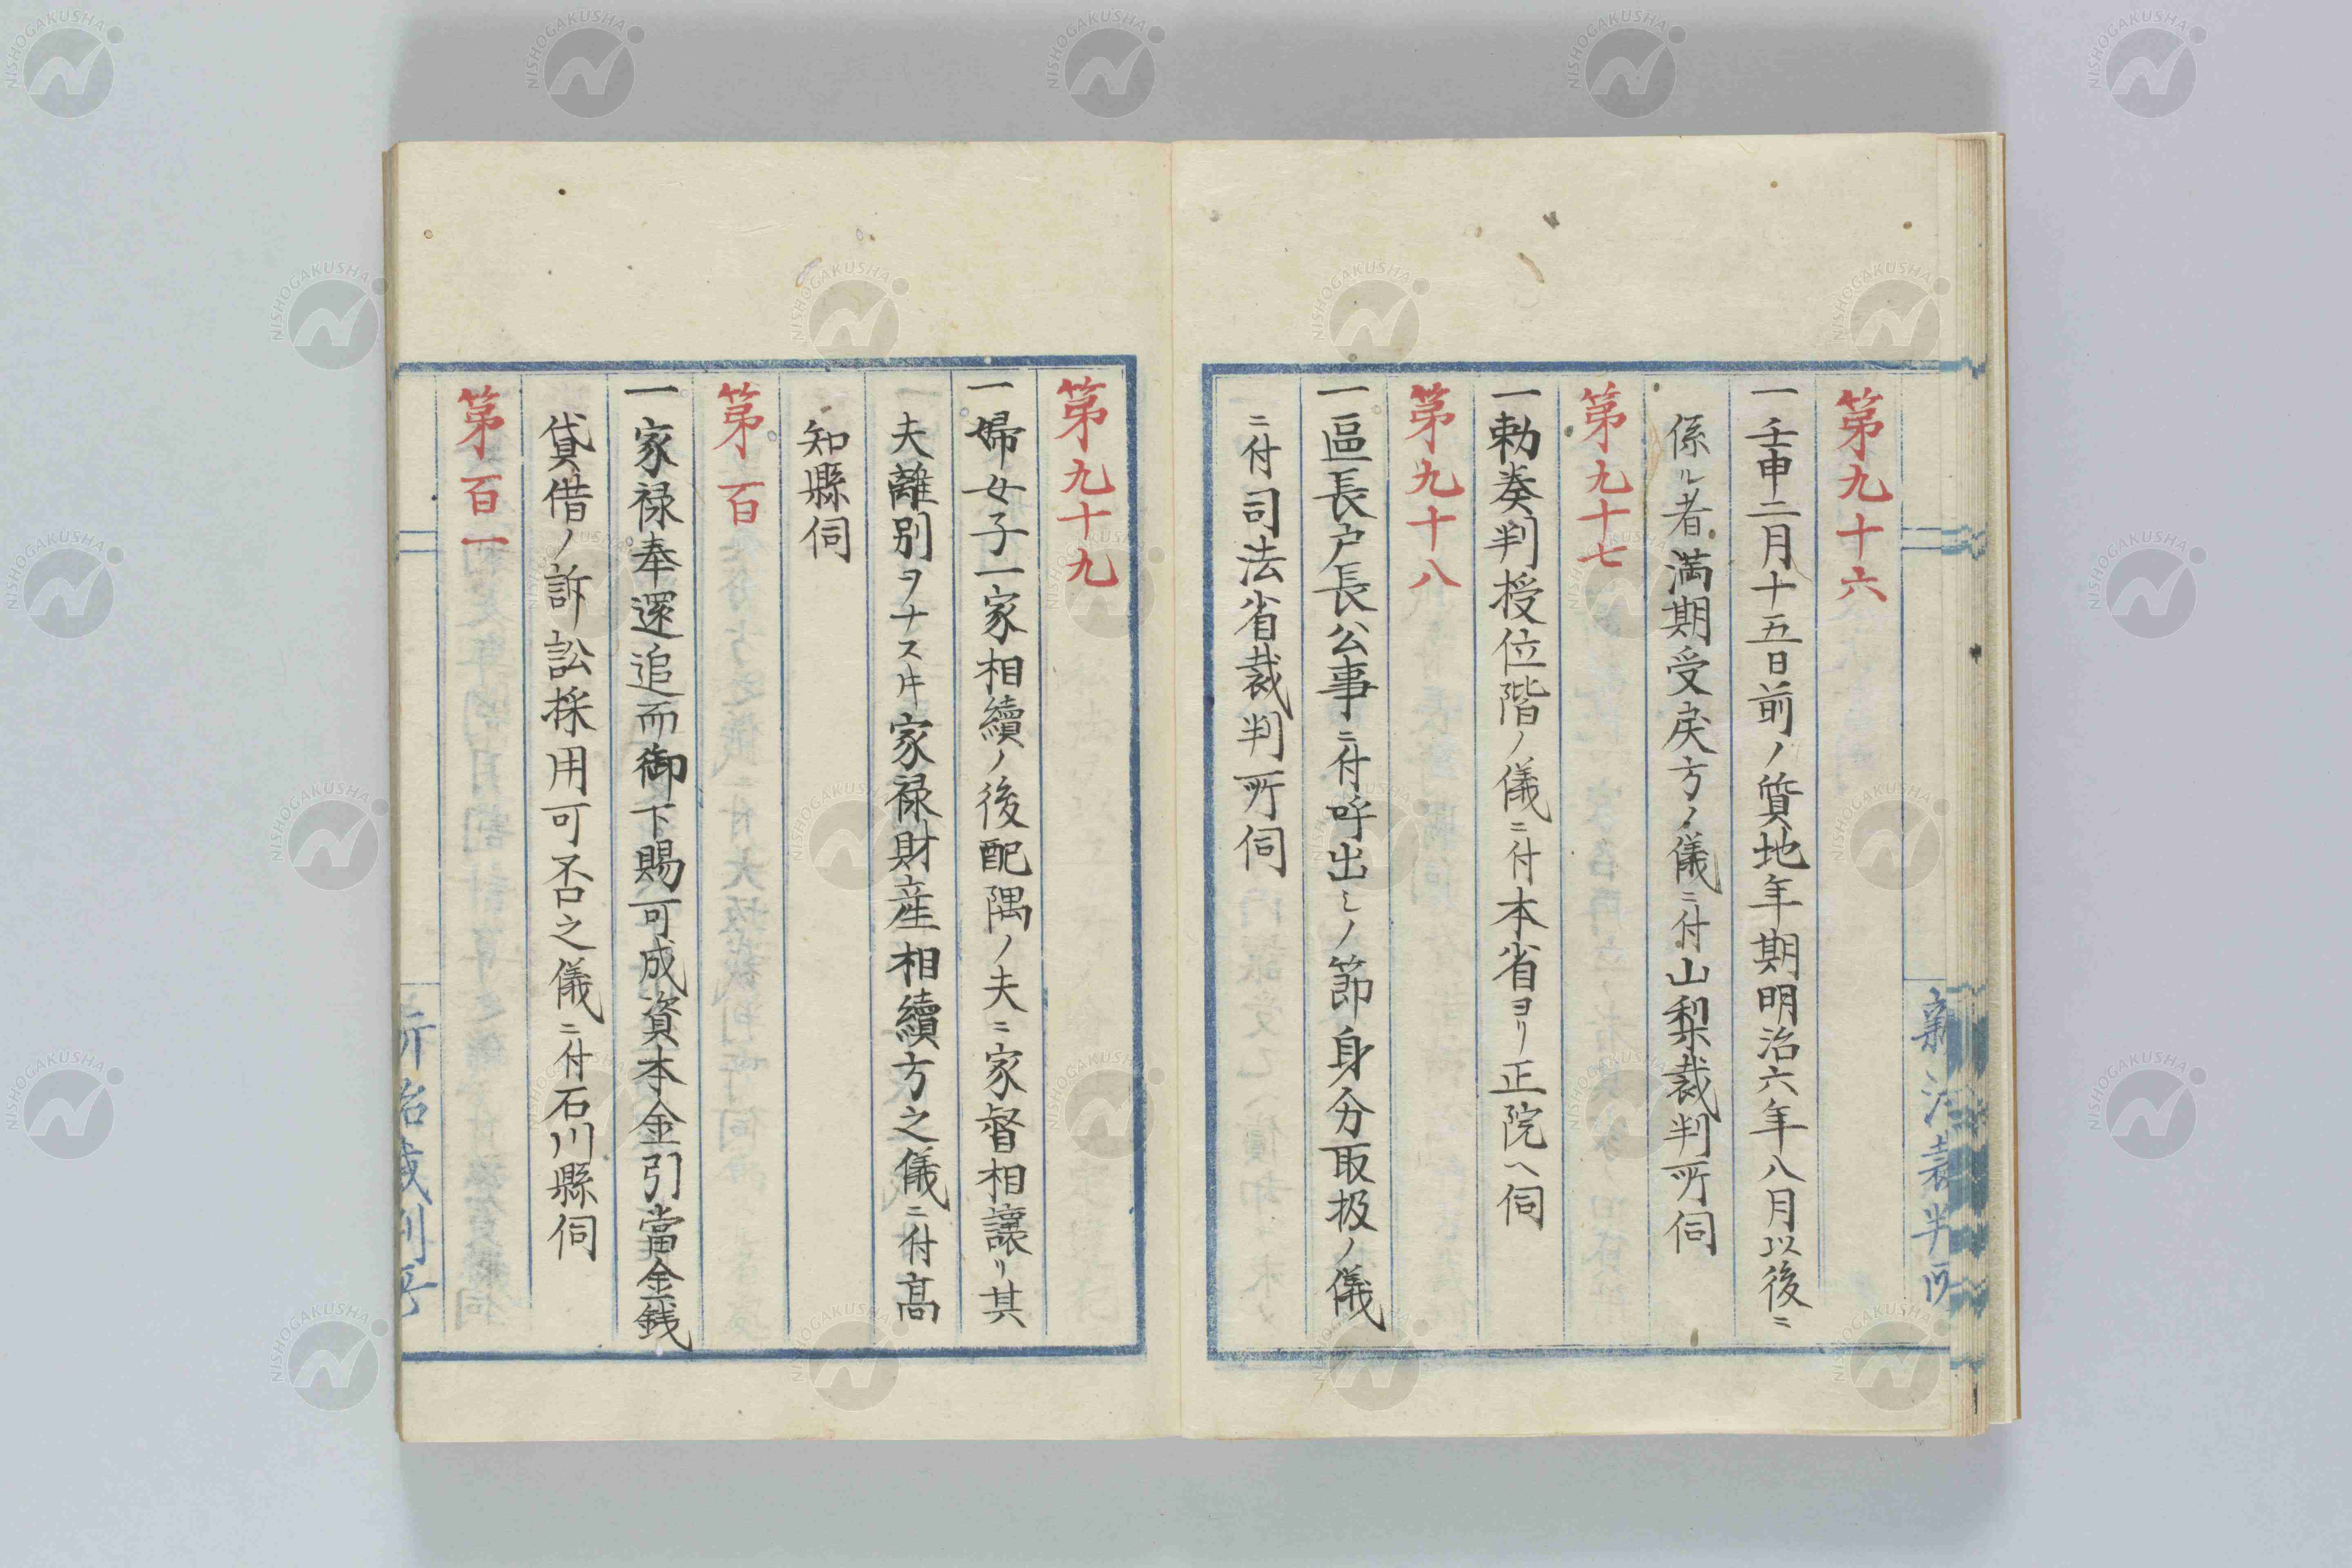 第九十六
一壬申二月十五日前ノ質地年期明治六年八月以後ニ
係ル者満期受戻方ノ儀ニ付山梨裁判所伺
第九十七
一勅奏判授位階ノ儀ニ付本省ヨリ正院ヘ伺
第九十八
一區長戸長公事ニ付呼出シノ節身分取扱ノ儀
ニ付司法省裁判所伺
第九十九
一婦女子一家相續ノ後配隅ノ夫ニ家督相讓リ其
夫離別ヲナス𪜈家禄財産相續方之儀ニ付髙
知縣伺
第百
一家禄奉還追而御下賜可成資本金引當金銭
貸借ノ訴訟採用可否之儀ニ付石川縣伺
第百一
NISHOGAKUSHA